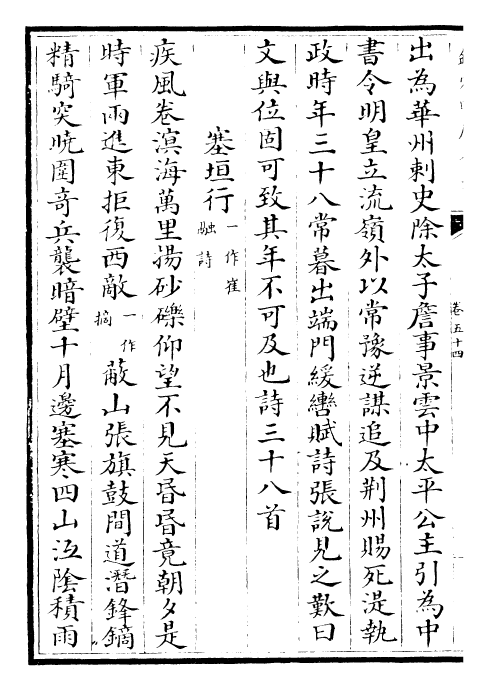 卷五十四
出為華州刺史除太子詹事景雲中太平公主引為中
書令明皇立流嶺外以常豫逆謀追及荆州賜死湜執
政時年三十八常暮出端門緩轡賦詩張說見之歎曰
文與位固可致其年不可及也詩三十八首
塞垣行一作崔融詩
疾風卷溟海萬里揚砂礫仰望不見天昏昏竟朝夕是
時軍兩進東拒復西敵一作摘蔽山張旗鼓間道潛鋒鏑
精騎突曉圍竒兵襲暗壁十月邊塞寒四山沍陰積雨